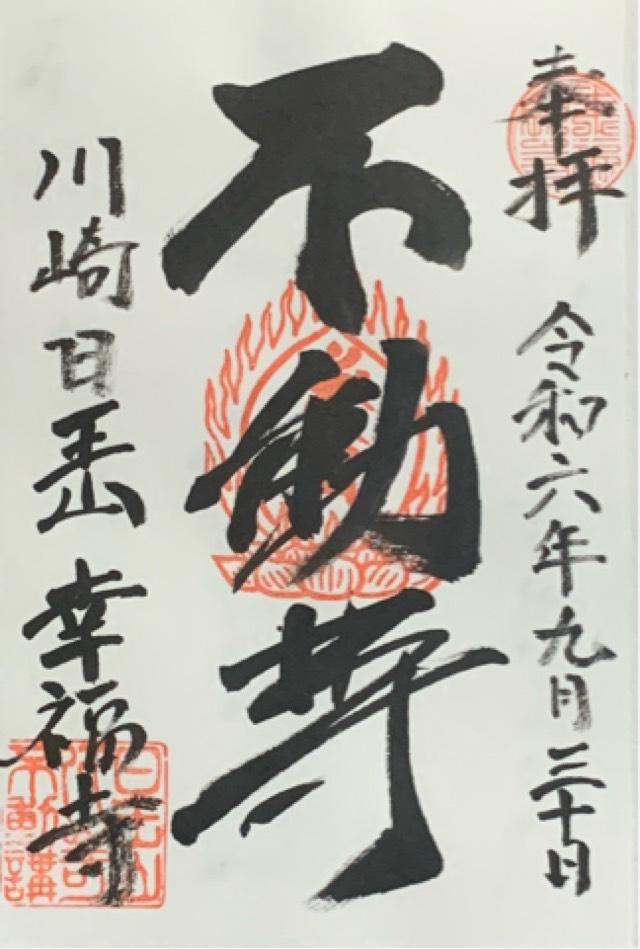 奉拝
令和六年九月三十日
不動尊
川崎日玉山
幸福寺